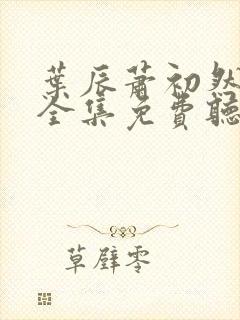 葉辰蕭初然
全集免費聽
草壁零